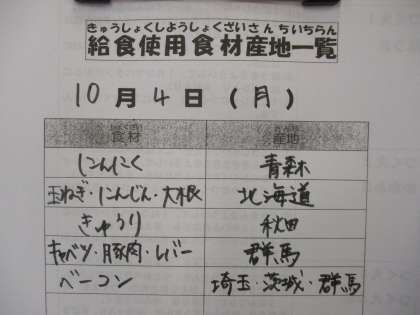 きゅうしょくしようしょくざいさんちいちらん
給食使用食材産地一覧
10月4日(月)
食材 産地
にんにく 青森
玉ねぎ・にんじん・大根 北海道
きゅうり 秋田
キャベツ・豚肉・レバー 群馬
ベーコン 埼玉・茨城・群馬